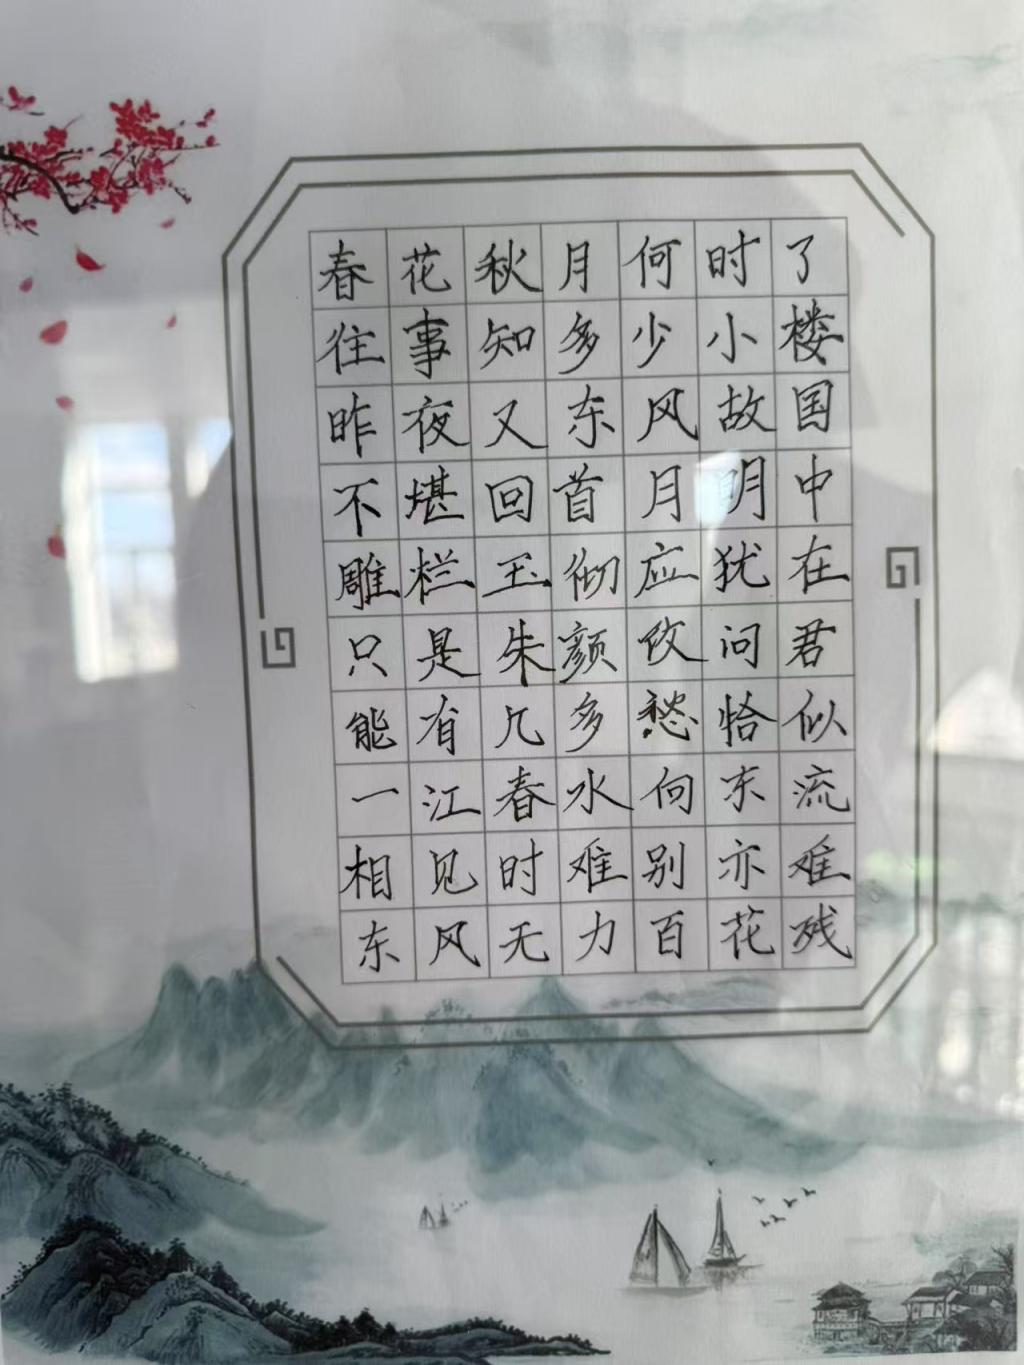 春花秋月何时了
往事知多少小楼
昨夜又东风故国
不堪回首月明中
雕栏玉彻应犹在
只是朱颜改问君
能有几多愁恰似
一江春水向东流
相见时难别亦难
东风无力百花残